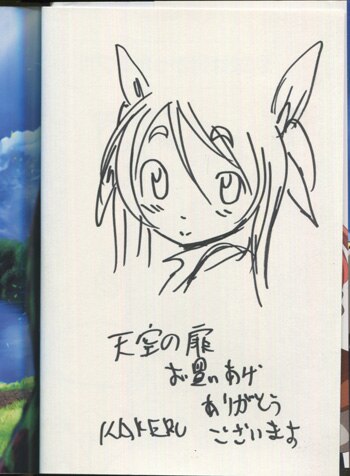 天空の扉
お買いあげ
ありがとう
KAKERU ございます